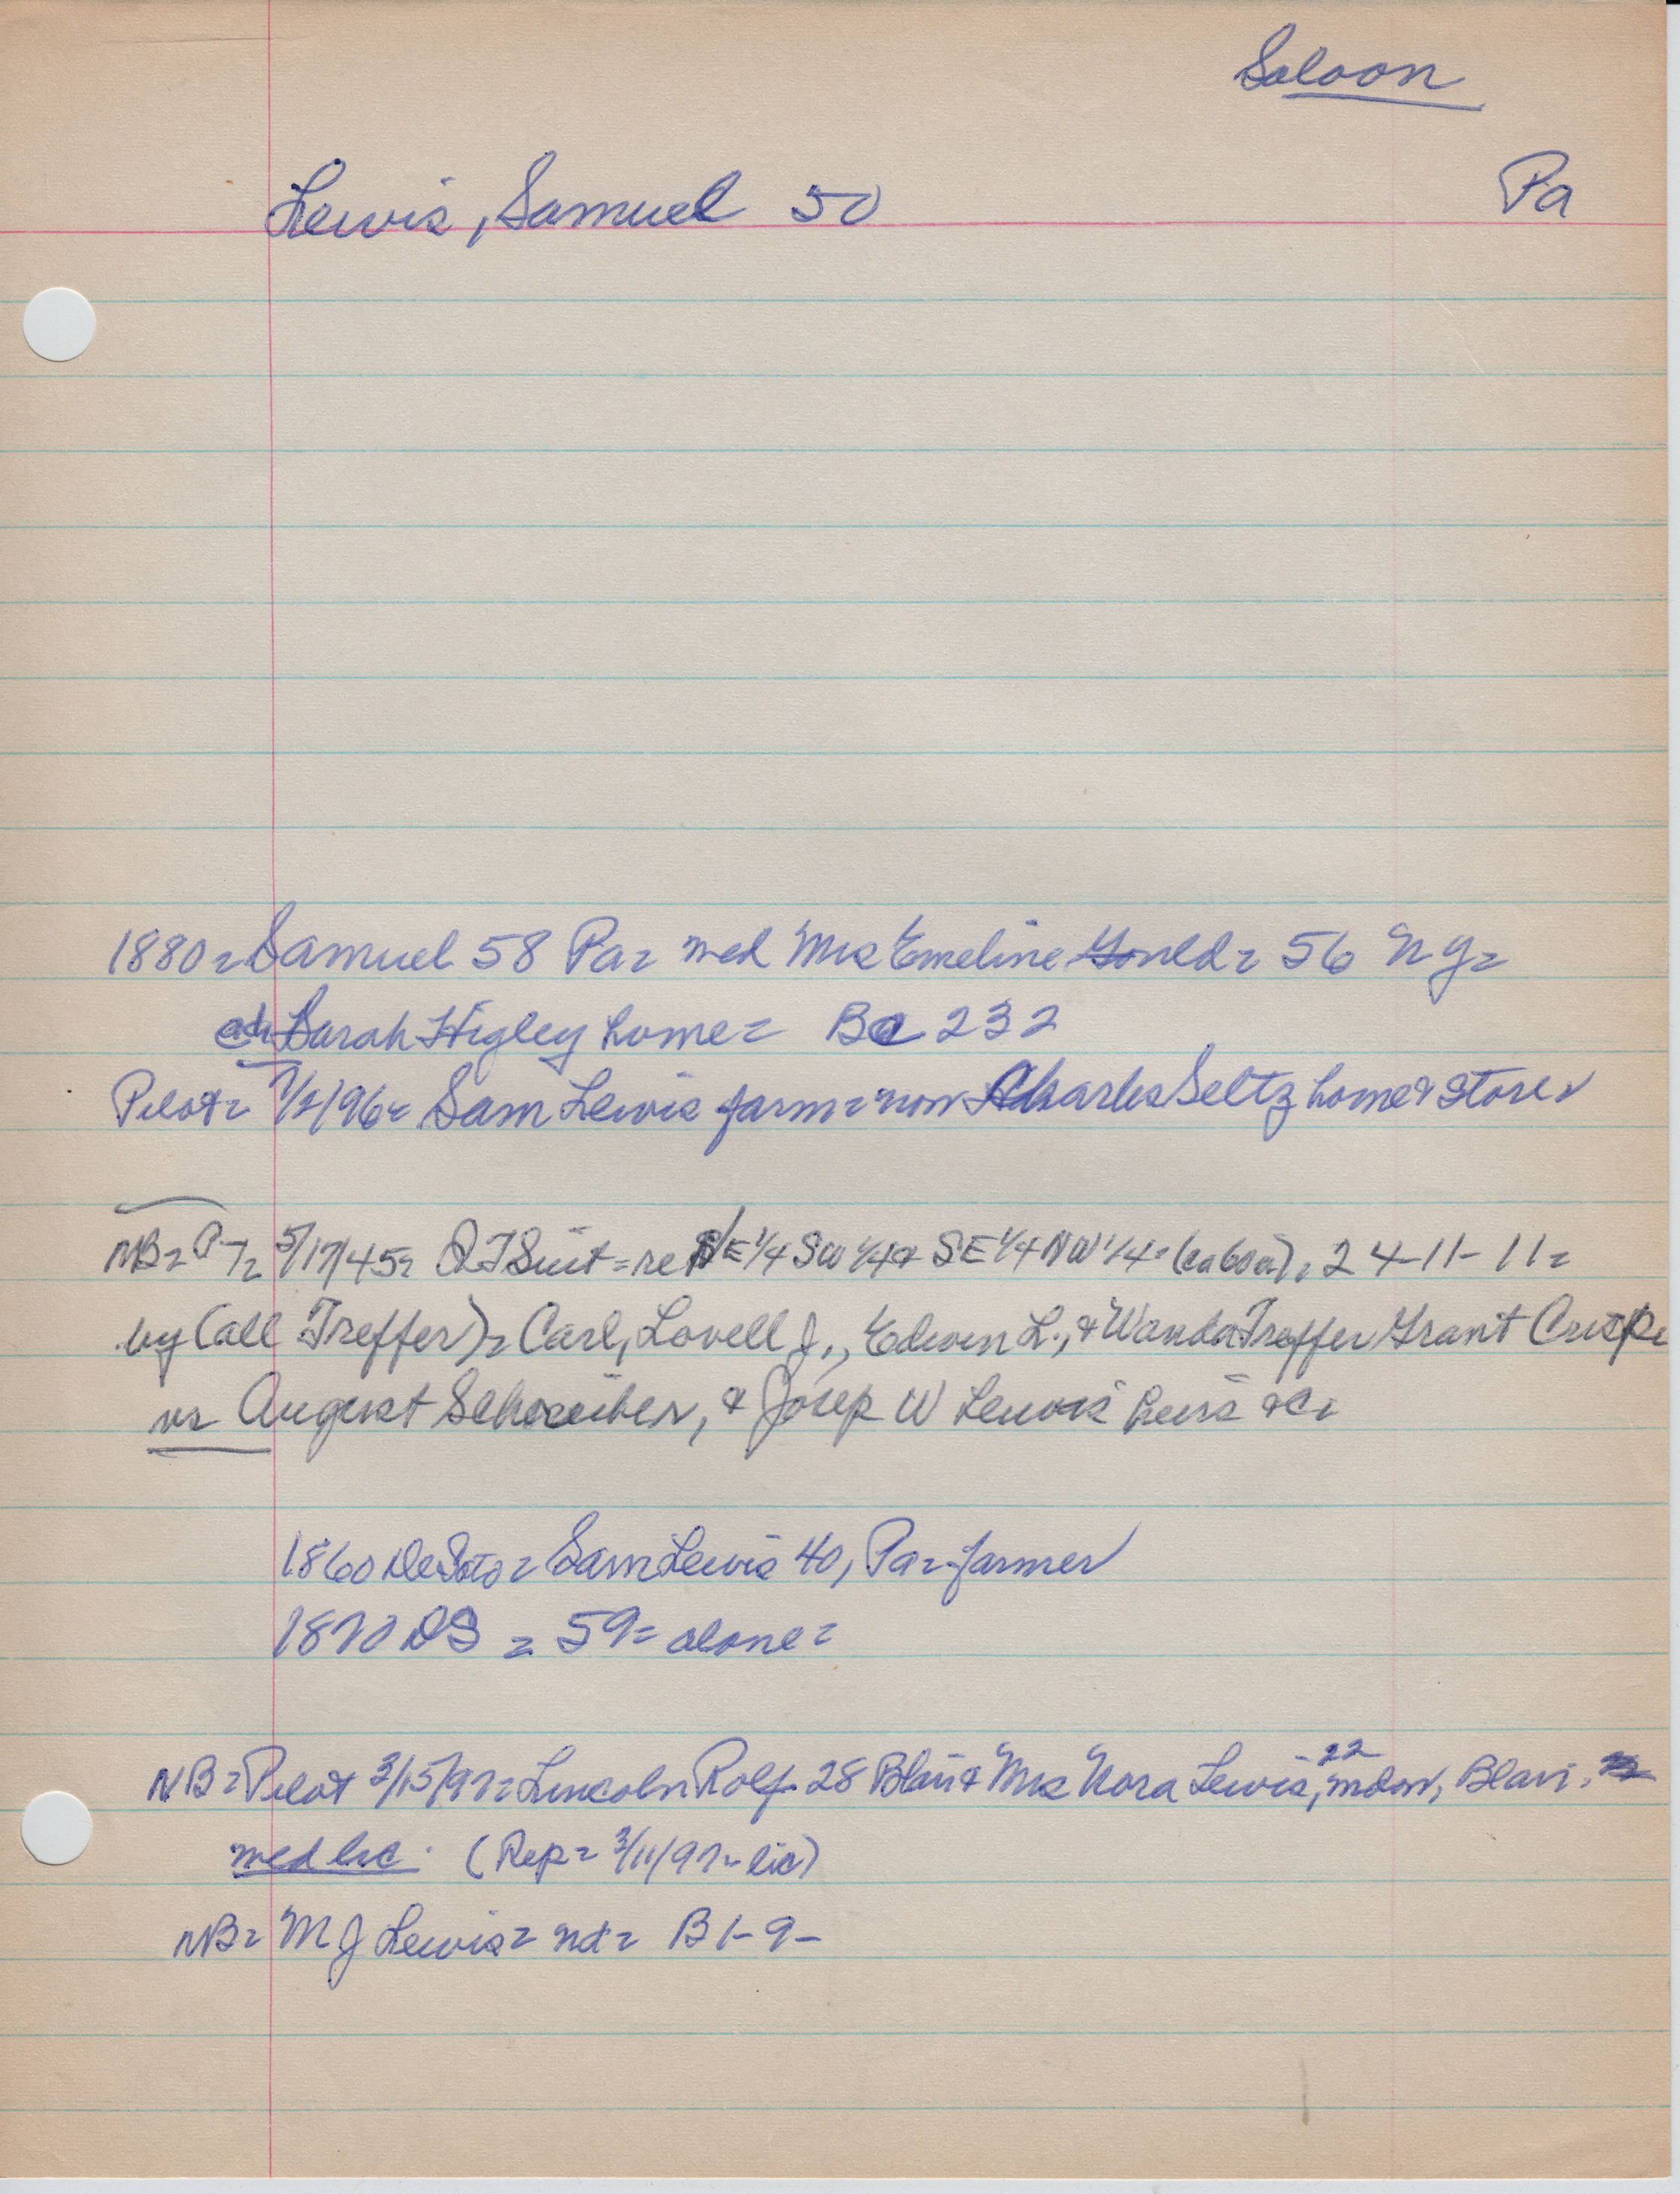 Saloon
Lewis, Samuel 50 Pa
1880= Samuel 58 Pa= med Mrs Emeline Gould= 56 NY=
Sarah Higley home= Ba 232
Pilot= 96= Sam Lewis farm= now Charles Seltz home & store=
NB= P-T= 5/17/45= QTSuit= re E 1/4 SW 1/4 & SE 1/4 NW 1/4= (ca 60a), 24-11-11=
by Call Treffer)= Carl, Lovell J., Edwin L., & Wanda Treffer Grant
vs August Schreiber, & Josep W Lewis heirs &c=
1860 DeSoto= Sam Lewis 40, Pa= farmer
1870 DS = 59= alone=
NB= Pilot 3/15/97= Lincoln Rolf 28 Blair & Mrs Nora Lewis, 22 Blair,
med lic. (Rep= 3/11/97= lic)
NB= M J Lewis= nd= B 1-9-